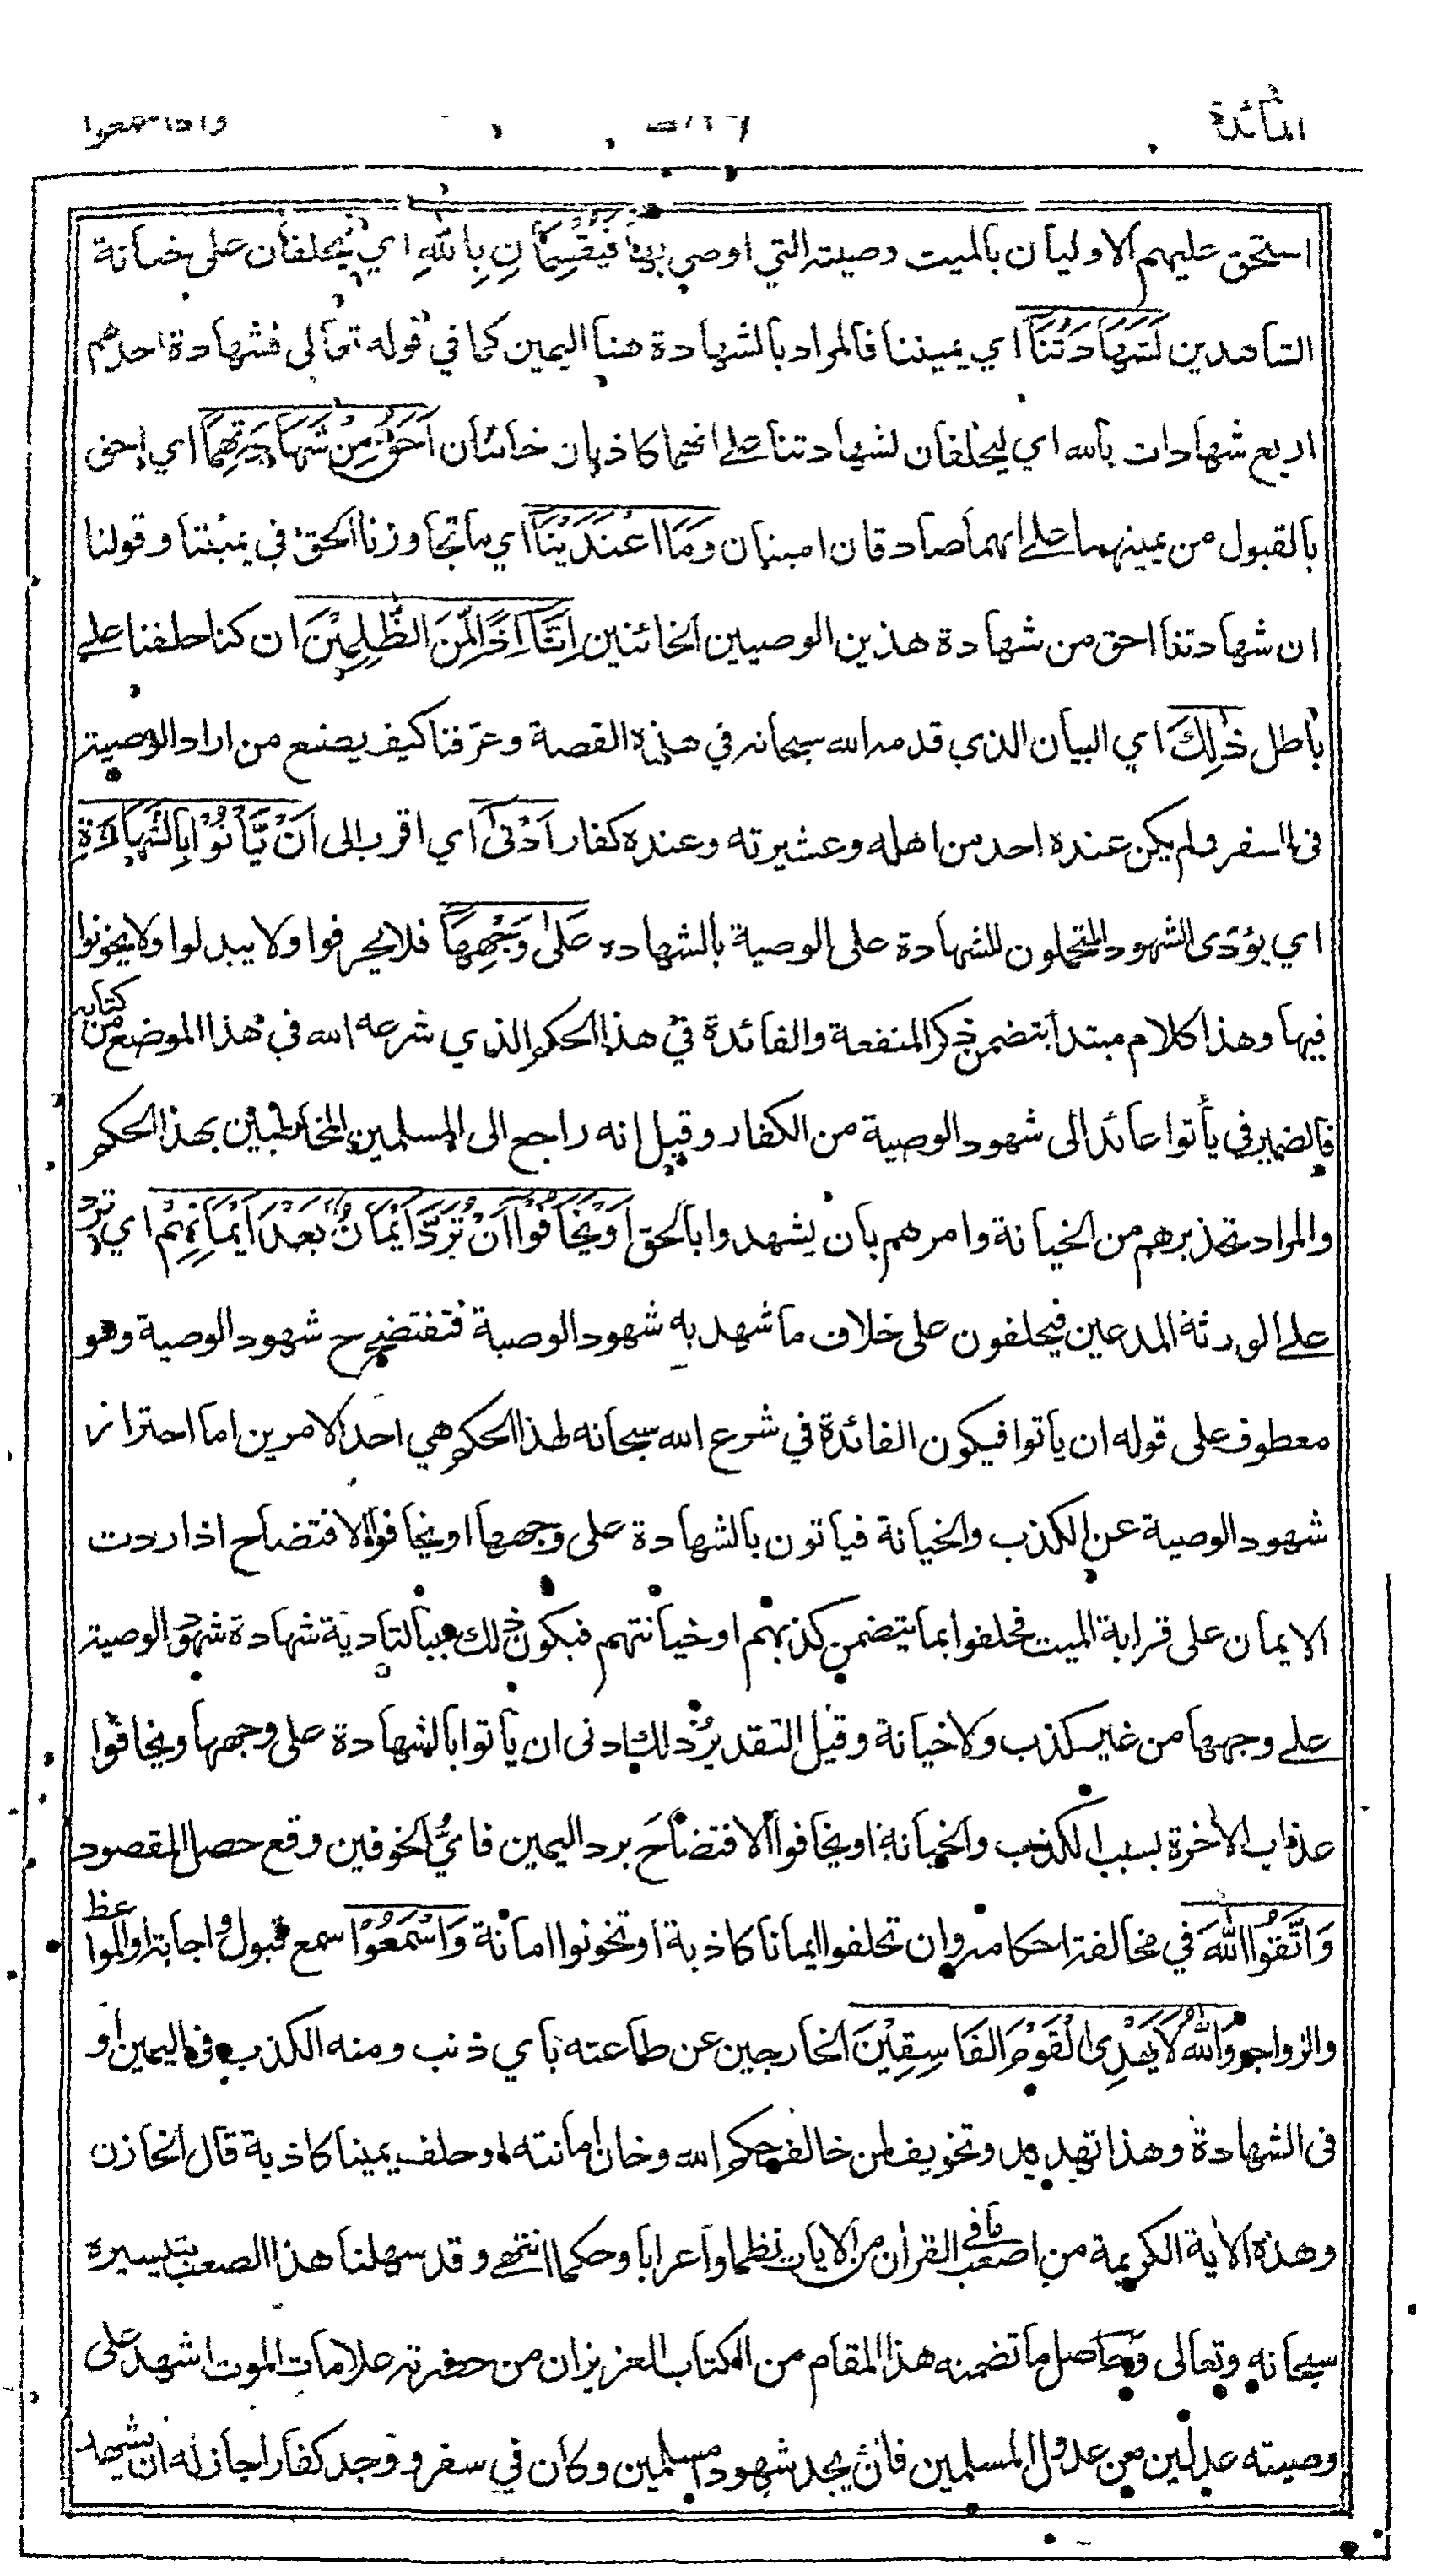 المائدة واذا سمعوا
استحق عليهم الاوليان بالميت وصيته التي اوصى بها فَيُقْسِمَانِ بِاللّٰهِ اي يحلفان على خيانة
الشاهدين لَشَهَادَتُنَا اي يميننا فالمراد بالشهادة هنا اليمين كما في قوله تعالى فشهادة احدهم
اربع شهادات بالله اي ليحلفان لشهادتنا على انهما كاذبان خائنان اَحَقُّ مِنْ شَهَادَتِهِمَا اي احق
بالقبول من يمينهما على انهما صادقان امينان وَمَا اعْتَدَيْنَا اي ما تجاوزنا الحق في يميننا وقولنا
ان شهادتنا احق من شهادة هذين الوصيين الخائنين اِنَّا اِذًا لَّمِنَ الظّٰلِمِيْنَ ان كنا حلفنا على
باطل ذٰلِكَ اي البيان الذي قدمه الله سبحانه في هذه القصة وعرّفنا كيف يصنع من اراد الوصية
فى السفر ولم يكن عنده احد من اهله وعشيرته وعنده كفار اَدْنٰى اي اقرب الى اَنْ يَّاْتُوْا بِالشَّهَادَةِ
اي يؤدى الشهود المتحملون للشهادة على الوصية بالشهاده عَلٰى وَجْهِهَا فلا يحرفوا ولا يبدلوا ولا يخونوا
فيها وهذا كلام مبتدأ يتضمن ذكر المنفعة والفائدة في هذا الحكم الذي شرعه الله في هذا الموضع من كتابه
فالضمير في يأتوا عائد الى شهود الوصية من الكفار وقيل انه راجع الى المسلمين المخاطبين بهذا الحكم
والمراد تحذيرهم من الخيانة وامرهم بان يشهدوا بالحق اَوْ يَخَافُوْا اَنْ تُرَدَّ اَيْمَانٌ بَعْدَ اَيْمَانِهِمْ اي ترد
على الورثة المدعين فيحلفون على خلاف ما شهد به شهود الوصية فتفتضح شهود الوصية وهو
معطوف على قوله ان ياتوا فيكون الفائدة في شرع الله سبحانه لهذا الحكم هي احد الامرين اما احتراز
شهود الوصية عن الكذب والخيانة فياتون بالشهادة على وجهها او يخافوا الافتضاح اذا ردت
الايمان على قرابة الميت فحلفوا بما يتضمن كذبهم او خيانتهم فيكون ذلك سببا لتادية شهادة شهود الوصية
على وجهها من غير كذب ولا خيانة وقيل التقدير ذلك ادنى ان يأتوا بالشهادة على وجهها ويخافوا
عذاب الاخرة بسبب الكذب والخيانة او يخافوا الافتضاح برد اليمين فايّ الخوفين وقع حصل المقصود
وَاتَّقُوا اللّٰهَ في مخالفة احكامه وان تحلفوا ايمانا كاذبة او تخونوا امانة وَاسْمَعُوْا سمع قبول واجابة المواعظ
والزواجر وَاللّٰهُ لَا يَهْدِى الْقَوْمَ الْفَاسِقِيْنَ الخارجين عن طاعته باي ذنب ومنه الكذب فى اليمين او
فى الشهادة وهذا تهديد وتخويف لمن خالف حكم الله وخان امانته او حلف يمينا كاذبة قال الخازن
وهذه الاية الكريمة من اصعب ما في القران من الايات نظما واعرابا وحكما انتهى وقد سهلنا هذا الصعب بتيسيره
سبحانه وتعالى وحاصل ما تضمنه هذا المقام من الكتاب العزيز ان من حضرته علامات الموت اشهد على
وصيته عدلين من عدول المسلمين فان لم يجد شهودا مسلمين وكان في سفر ووجد كفارا جاز له ان يشهد